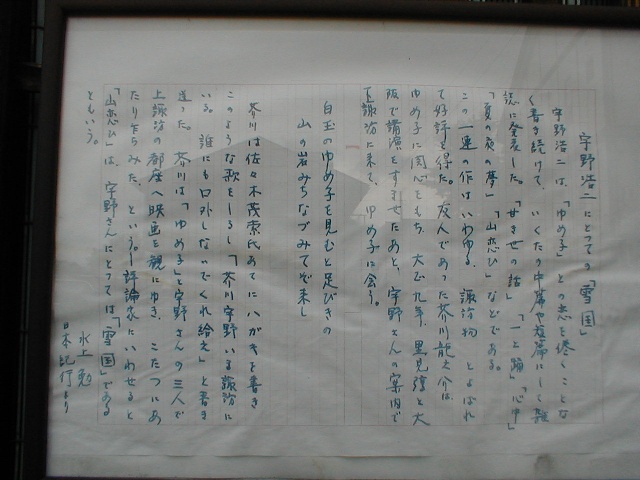 宇野浩二にとっての「雪国」
宇野浩二は、「ゆめ子」との恋を倦くことな
く書き続けて、いくたの中篇や短篇にして雑
誌に発表した。「甘き世の話」「一と踊」「心中」
「夏の夜の夢」「山恋ひ」などである。
この一連の作はいわゆる、諏訪物とよばれ
て好評を得た。友人であった芥川龍之介は
ゆめ子に関心をもち、大正九年、里見弴と大
阪で講演をすませたあと、宇野さんの案内で
下諏訪に来て、ゆめ子に会う。
白玉のゆめ子を見むと足びきの
山の岩みちなづみてぞ来し
芥川は佐々木茂索氏あてにハガキを書き
このような歌をしるし「芥川宇野いる諏訪に
いる。誰にも口外しないでくれ給え」と書き
送った。芥川は「ゆめ子」と宇野さんの三人で
上諏訪の都座へ映画を観にゆき、こたつにあ
たりたちみた、という。評論家にいわせると
「山恋ひ」は、宇野さんにとっては「雪国」である
ともいう。
水上勉
日本紀行より